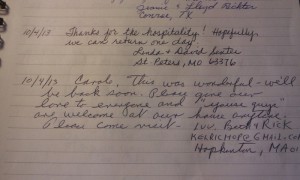 Jimmie & Lloyd Richter
Conroe, TX
10/4/13 Thanks for the hospitality! Hopefully,
we can return one day!
Linda & David
St Peters, MO 63376
10/9/13 Carol, This was wonderful - we'll
be back soon. Please give our
love to everyone and "youse guys"
are welcome at our home anytime.
Please come visit - Luv, & Rick
Hopkinton, MA